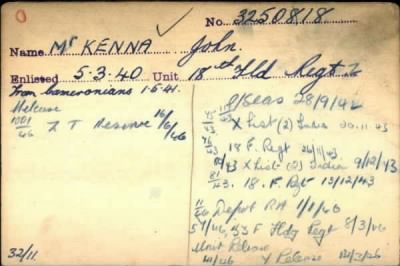 No. 3250818
Name Mc KENNA John.
Enlisted 5.3.40 Unit 18th Fld Regt
From Cameronians 1.5.41.
O/Seas 28/9/42
Release
1001/46 Z T Reserve 16/6/46
X List (2) India 20.11.43
18 F. Regt 26/11/43
X List (2) India 9/12/43
81/43. 18. F. Rgt 13/12/43
11/46 Depot RA 1/1/46
57/46, 53 F Fldg Regt 8/3/46
Unit Release
Y Release
32/11